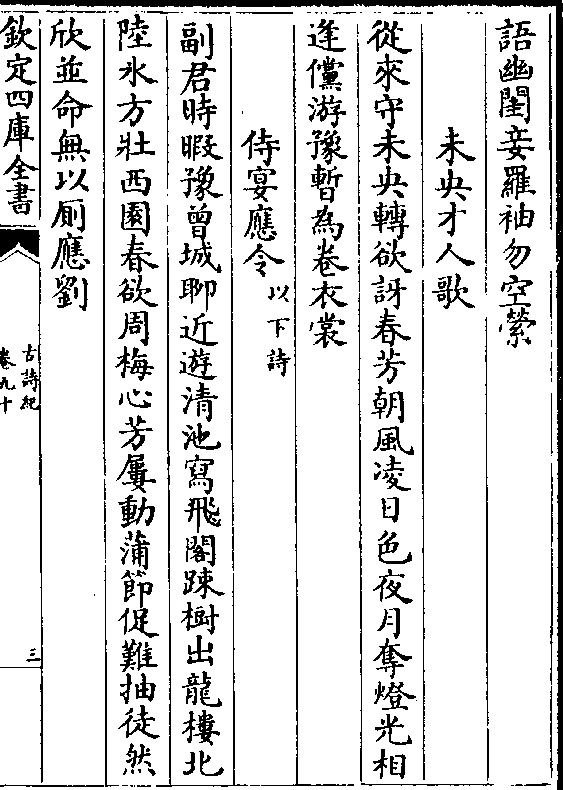 語幽閨妾羅袖勿空縈
未央才人歌
從來守未央轉欲訝春芳朝風凌日色夜月奪燈光相
逢儻游豫暫為卷衣裳
侍宴應令以下詩
副君時暇豫曾城聊近遊清池寫飛閣踈樹出龍樓北
陸氷方壯西園春欲周梅心芳屢動蒲節促難抽徒然
欣並命無以厠應劉
欽定四庫全書
古詩紀
卷九十
三